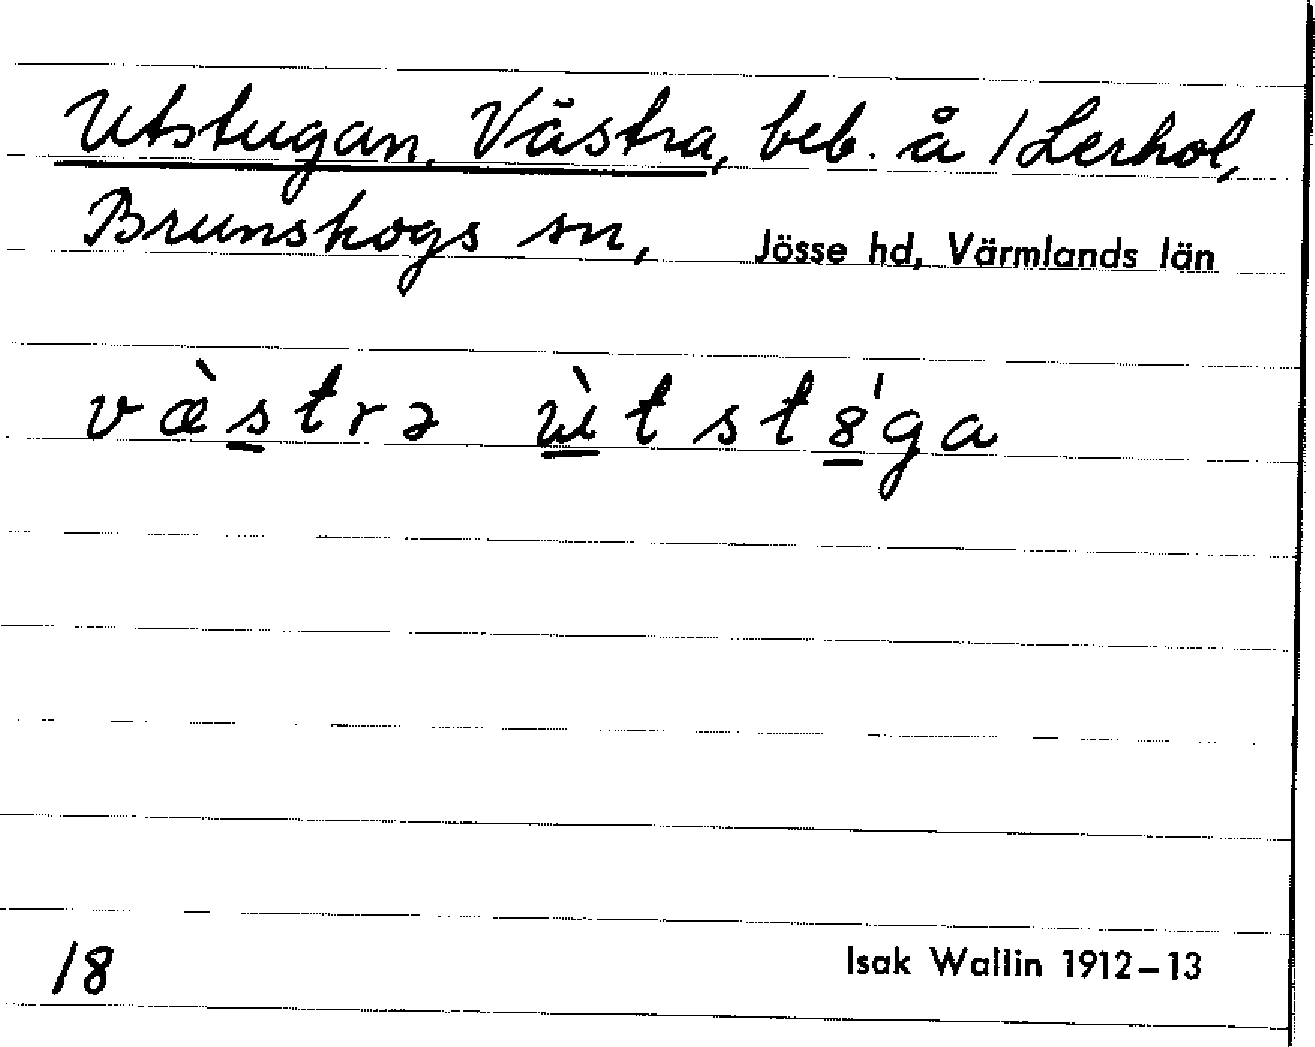 Utstugan, Västra, beb. å 1 Lerhol,
Brunskogs sn, Jösse hd, Värmlands län
væ̀strə ùtst8̍ga
18 Isak Wallin 1912–13